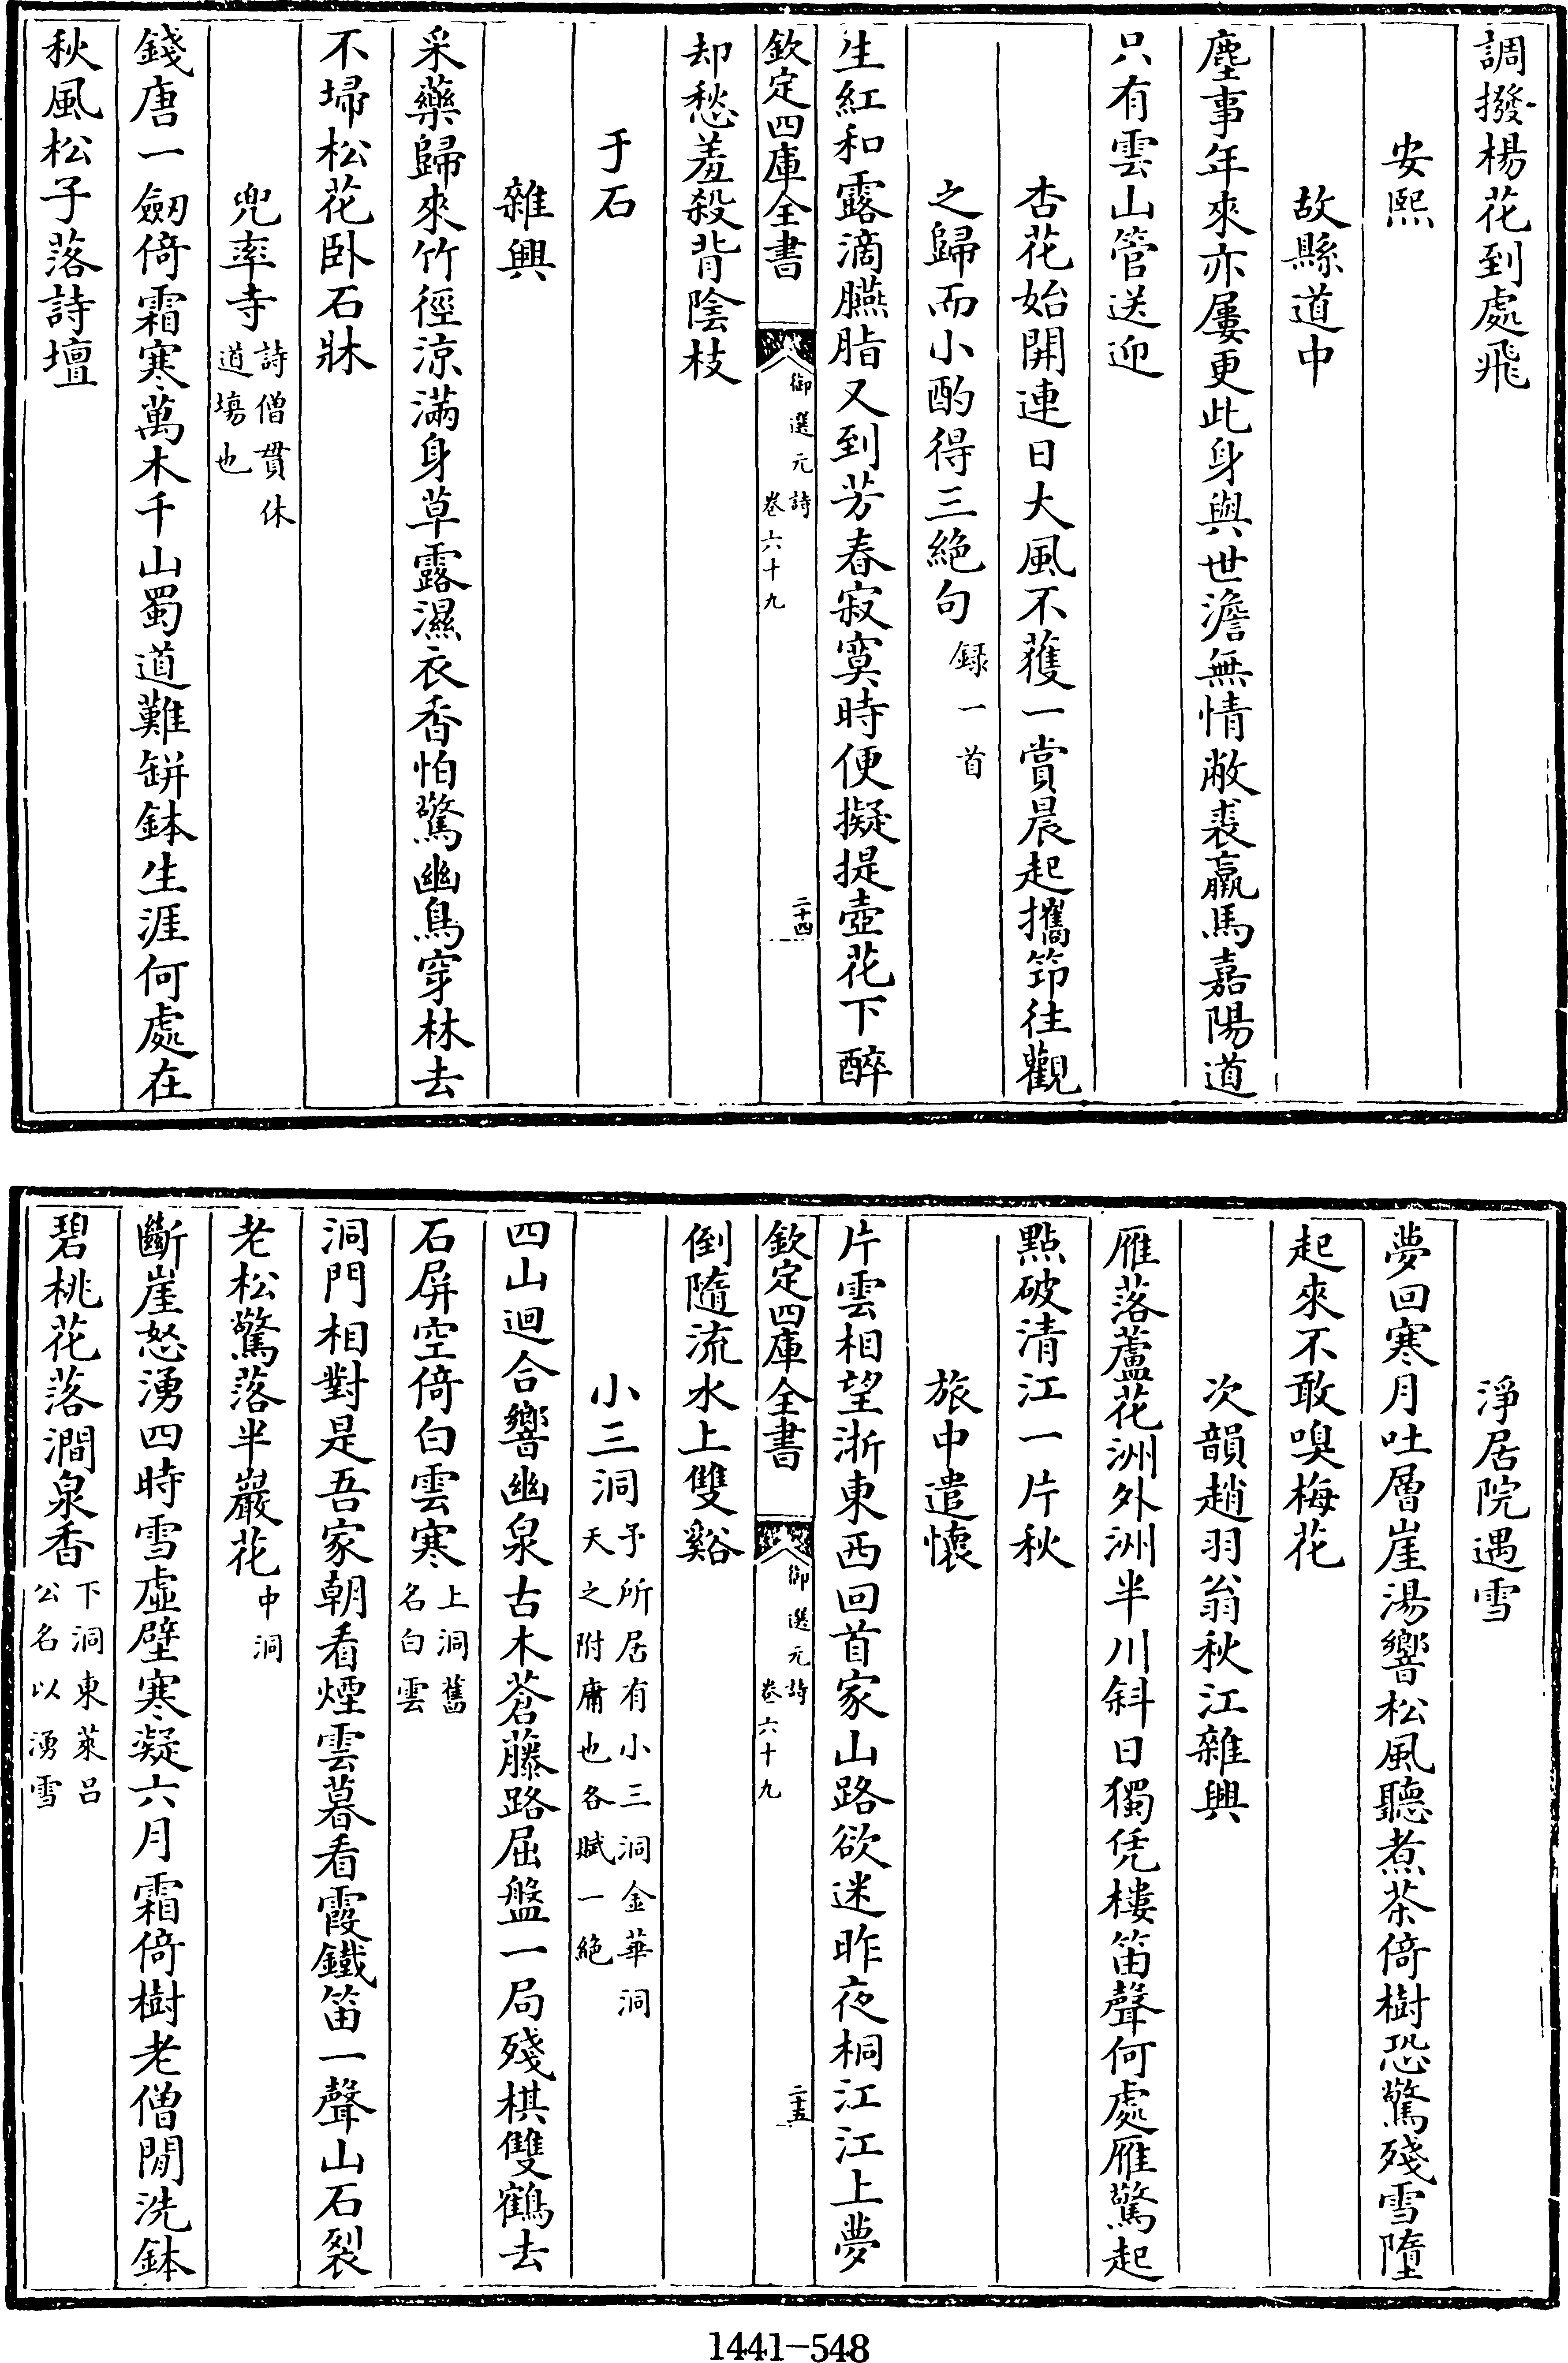 調撥楊花到處飛
安熙
故縣道中
塵事年來亦屢更此身與世澹無情敝裘羸馬嘉陽道
只有雲山管送迎
杏花始開連日大風不獲一賞晨起攜笻往觀
之歸而小酌得三絶句録一首
生紅和露滴臙脂又到芳春寂寞時便擬提壺花下醉
欽定四庫全書
御選元詩
卷六十九
二十四
却愁羞殺背陰枝
于石
雜興
采藥歸來竹徑涼滿身草露濕衣香怕驚幽鳥穿林去
不埽松花卧石牀
兜率寺詩僧貫休
道塲也
錢唐一劒倚霜寒萬木千山蜀道難缾鉢生涯何處在
秋風松子落詩壇
淨居院遇雪
夢回寒月吐層崖湯響松風聽煮茶倚樹恐驚殘雪墮
起來不敢嗅梅花
次韻趙羽翁秋江雜興
雁落蘆花洲外洲半川斜日獨凭樓笛聲何處雁驚起
點破清江一片秋
旅中遣懷
片雲相望浙東西回首家山路欲迷昨夜桐江江上夢
欽定四庫全書
御選元詩
卷六十九
二十五
倒隨流水上雙谿
小三洞予所居有小三洞金華洞
天之附庸也各賦一絶
四山迴合響幽泉古木蒼藤路屈盤一局殘棋雙鶴去
石屏空倚白雲寒上洞舊
名白雲
洞門相對是吾家朝看煙雲暮看霞鐵笛一聲山石裂
老松驚落半巖花中洞
斷崖怒湧四時雪虛壁寒凝六月霜倚樹老僧閒洗鉢
碧桃花落澗泉香下洞東萊吕
公名以湧雪
1441-548